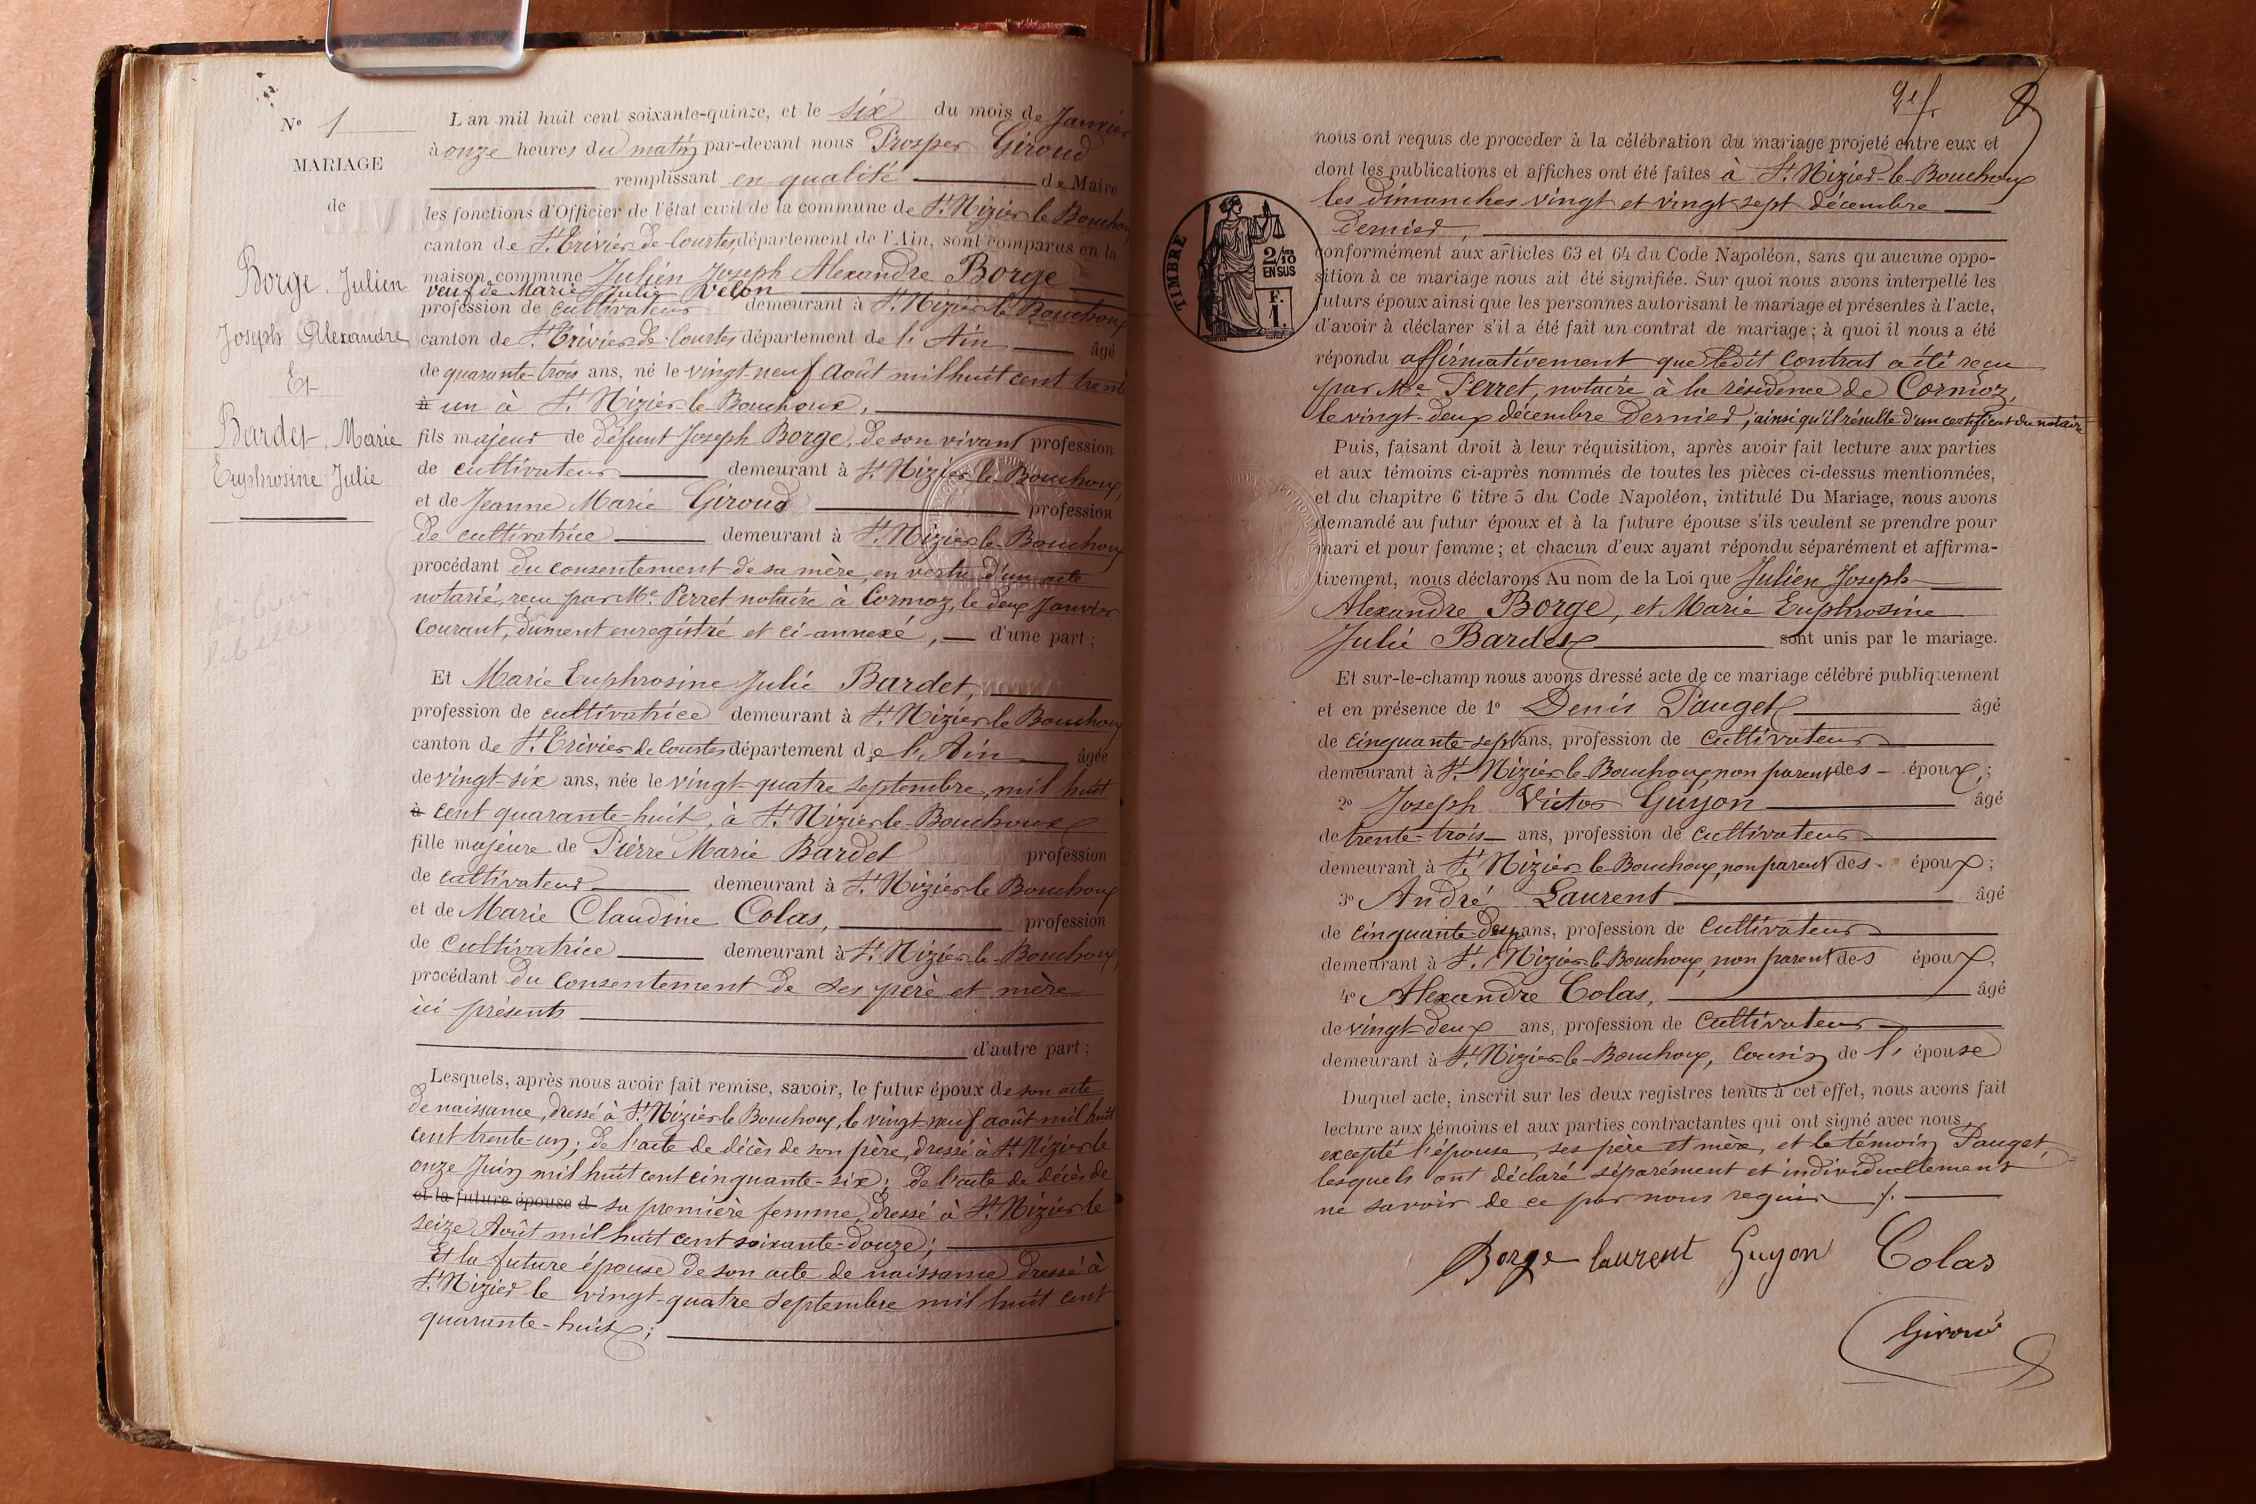 N° 1
MARIAGE
de
Borge, Julien
Joseph Alexandre
Et
Bardet, Marie
Euphrosine Julie
L an mil huit cent soixante-quinze, et le six du mois de Janvier
à onze heures du matin par-devant nous Prosper Giroud
remplissant en qualité de Maire
les fonctions d'Officier de l'état civil de la commune de St Nizier le Bouchoux
canton de St Trivier de Courtes département de l'Ain, sont comparus en la
maison commune Julien Joseph Alexandre Borge
veuf de Marie Julie Velon
profession de cultivateur demeurant à St Nizier le Bouchoux
canton de St Trivier de Courtes département de l'Ain âgé
de quarante-trois ans, né le vingt-neuf Août mil huit cent trente
à un à St Nizier-le-Bouchoux,
fils majeur de défunt Joseph Borge, de son vivant profession
de cultivateur demeurant à St Nizier-le-Bouchoux,
et de Jeanne Marie Giroud profession
de cultivatrice demeurant à St Nizier-le-Bouchoux
procédant du consentement de sa mère, en vertu d'un acte
notarié, reçu par Me Perret notaire à Cormoz, le deux Janvier
Courant, dûment enregistré et ci-annexé, d'une part;
Et Marie Euphrosine Julie Bardet,
profession de cultivatrice demeurant à St Nizier le Bouchoux
canton de St Trivier de Courtes département de l'Ain âgée
de vingt-six ans, née le vingt-quatre septembre, mil huit
à cent quarante-huit, à St Nizier-le-Bouchoux
fille majeure de Pierre Marie Bardet profession
de cultivateur demeurant à St Nizier le Bouchoux
et de Marie Claudine Colas, profession
de cultivatrice demeurant à St Nizier-le-Bouchoux,
procédant du consentement de ses père et mère
ici présents
d'autre part;
Lesquels, après nous avoir fait remise, savoir, le futur époux de son acte
de naissance, dressé à St Nizier le Bouchoux, le vingt-neuf août mil huit
cent trente-un; de l'acte de décès de son père, dressé à St Nizier le
onze Juin mil huit cent cinquante-six; de l'acte de décès de
et la future épouse d sa première femme, dressé à St Nizier le
seize Août mil huit cent soixante-douze;
Et la future épouse de son acte de naissance dressé à
St Nizier le vingt-quatre septembre mil huit cent
quarante-huit;
nous ont requis de proceder à la célébration du mariage projeté entre eux et
dont les publications et affiches ont été faites à St Nizier-le-Bouchoux
les dimanches vingt et vingt-sept décembre
dernier,
TIMBRE
2/10
EN SUS
F.
1.
conformément aux articles 63 et 64 du Code Napoléon, sans qu'aucune oppo-
sition à ce mariage nous ait été signifiée. Sur quoi nous avons interpellé les
futurs époux ainsi que les personnes autorisant le mariage et présentes à l'acte,
d'avoir à déclarer s'il a été fait un contrat de mariage; à quoi il nous a été
répondu affirmativement que ledit contrat a été reçu
par Me Perret, notaire à la résidence de Cormoz,
le vingt-deux décembre dernier, ainsi qu'il résulte d'un certificat du notaire
Puis, faisant droit à leur réquisition, après avoir fait lecture aux parties
et aux témoins ci-après nommés de toutes les pièces ci-dessus mentionnées,
et du chapitre 6 titre 5 du Code Napoléon, intitulé Du Mariage, nous avons
demandé au futur époux et à la future épouse s'ils veulent se prendre pour
mari et pour femme; et chacun d'eux ayant répondu séparément et affirma-
tivement, nous déclarons Au nom de la Loi que Julien Joseph
Alexandre Borge, et Marie Euphrosine
Julie Bardet sont unis par le mariage.
Et sur-le-champ nous avons dressé acte de ce mariage célébré publiquement
et en présence de 1° Denis Pauget âgé
de cinquante-sept ans, profession de cultivateur
demeurant à St Nizier-le-Bouchoux, non parent des époux;
2° Joseph Victor Guyon âgé
de trente-trois ans, profession de cultivateur
demeurant à St Nizier-le-Bouchoux, non parent des époux;
3° André Laurent âgé
de cinquante-deux ans, profession de cultivateur
demeurant à St Nizier-le-Bouchoux, non parent des époux,
4° Alexandre Colas, âgé
de vingt-deux ans, profession de cultivateur
demeurant à St Nizier-le-Bouchoux, cousin de l'épouse
Duquel acte, inscrit sur les deux registres tenus à cet effet, nous avons fait
lecture aux témoins et aux parties contractantes qui ont signé avec nous,
excepté l'épouse, ses père et mère, et le témoin Pauget,
lesquels ont déclaré séparément et individuellement
ne savoir de ce par nous requis
Borge laurent Guyon Colas
Giroud